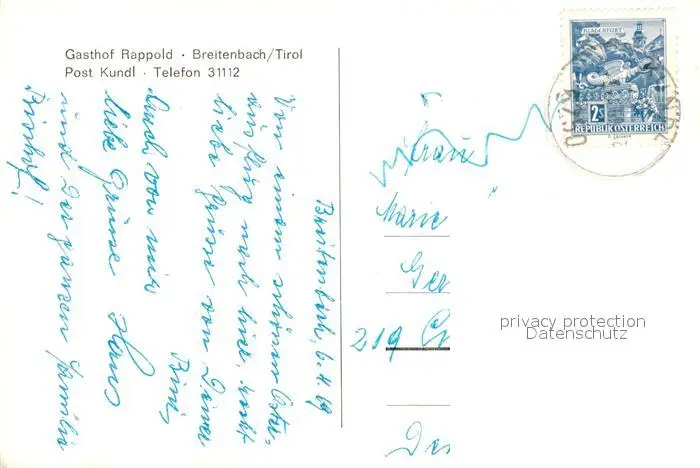 Gasthof Rappold · Breitenbach/Tirol
Post Kundl · Telefon 31112
Breitenbach, 6.4.69
Von einem schönen Oster-
ausflug nach hier, sendet
liebe Grüsse von Deiner
Auch von mir
liebe Grüsse Hans
und der ganzen Familie
KLAGENFURT
2S
REPUBLIK ÖSTERREICH
Frau
Marie
Ger
219
privacy protection
Datenschutz